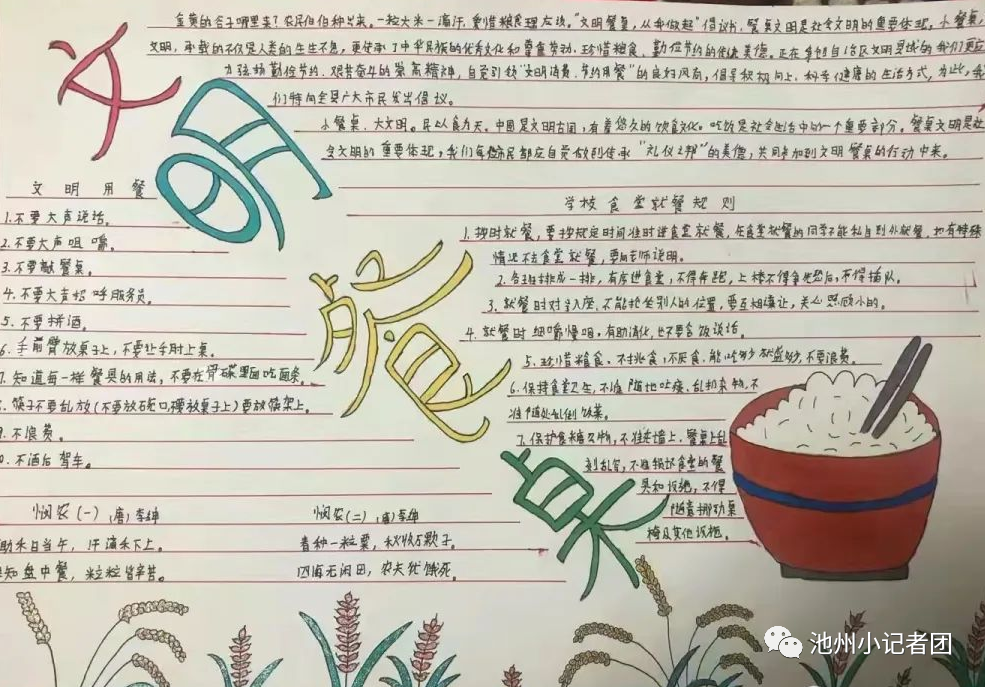 文明餐桌
金黄的谷子哪里来？农民伯伯种出来。一粒大米一滴汗，爱惜粮食理应该。"文明餐桌，从我做起"倡议书，餐桌文明的是社会文明的重要体现。小餐桌，
文明，承载的不仅是人类的生生不息，更传承了中华民族的优秀文化和尊重劳动，珍惜粮食、勤俭节约的传统美德。正在争创自治区文明县城的我们更应
力弘扬勤俭节约、艰苦奋斗的崇高精神，自觉引领"文明消费、节约用餐"的良好风尚，倡导积极向上、科学健康的生活方式，为此，我
们特向全县广大市民发出倡议。
小餐桌、大文明。民以食为天。中国是文明古国，有着悠久的饮食文化。吃饭是社会生活中的一个重要部分。餐桌文明是社
会文明的重要体现，我们每位市民都应自觉做到传承"礼仪之邦"的美德，共同参加到文明餐桌的行动中来。
文明用餐
1.不要大声说话。
2.不要大声咀嚼。
3.不要敲餐桌。
4.不要大声招呼服务员。
5.不要拼酒。
6.手前臂放桌子上，不要让手肘上桌。
7.知道每一样餐具的用法，不要在骨碟里面吃面条。
筷子不要乱放（不要放碗口，横放桌子上）要放筷架上。
不浪费。
不酒后驾车。
学校食堂就餐规则
1.按时就餐，要按规定时间准时进食堂就餐，在食堂就餐的同学不能私自到外就餐，如有特殊
情况不去食堂就餐，要向老师说明。
2.各班排成一排，有序进食堂，不得奔跑，上楼不得争先恐后，不得插队。
3.就餐时对号入座，不能抢坐别人的位置，要互相谦让，关心照顾小的。
4.就餐时细嚼慢咽，有助消化，也不要含饭说话。
5.珍惜粮食、不挑食，不厌食，能吃多少就盛多少，不要浪费。
6.保持食堂卫生，不准随地吐痰，乱扔杂物，不
准随处乱倒饭菜。
7.保护食堂公物，不准在墙上、餐桌上乱
刻乱写，不准损坏食堂的餐
具和设施，不得
随意挪动桌
椅及其他设施。
悯农（一）（唐）李绅
锄禾日当午，汗滴禾下土。
知盘中餐，粒粒皆辛苦。
悯农（二）（唐）李绅
春种一粒粟，秋收万颗子。
四海无闲田，农夫犹饿死。
池州小记者团